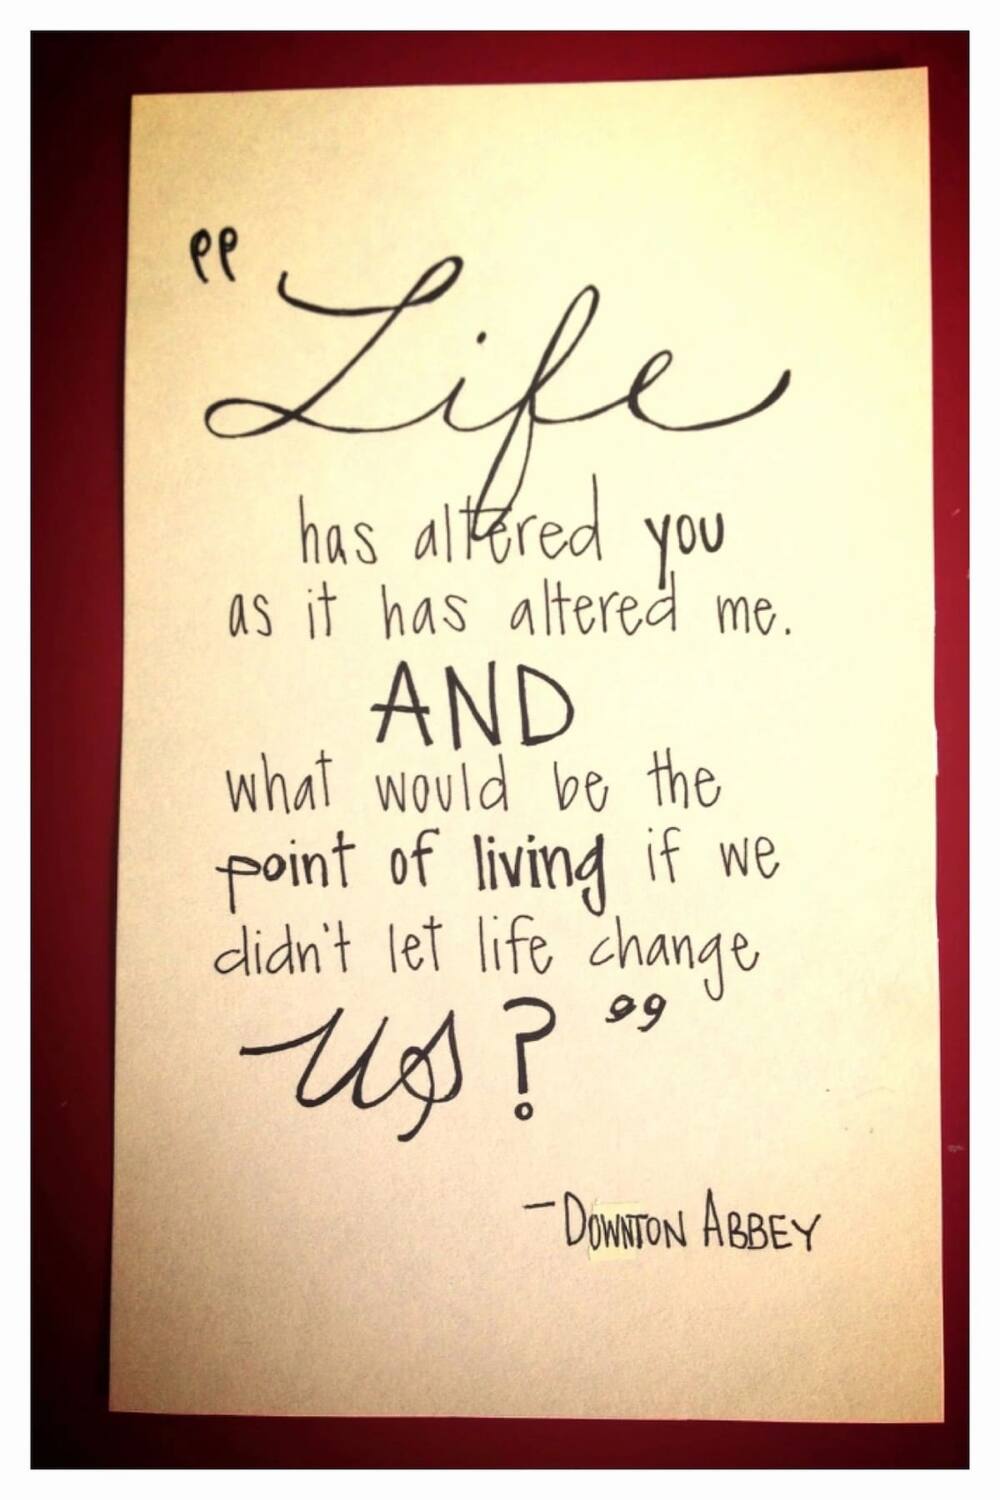 "Life
has altered you
as it has altered me.
AND
what would be the
point of living if we
didn't let life change
us?"
-DOWNTON ABBEY